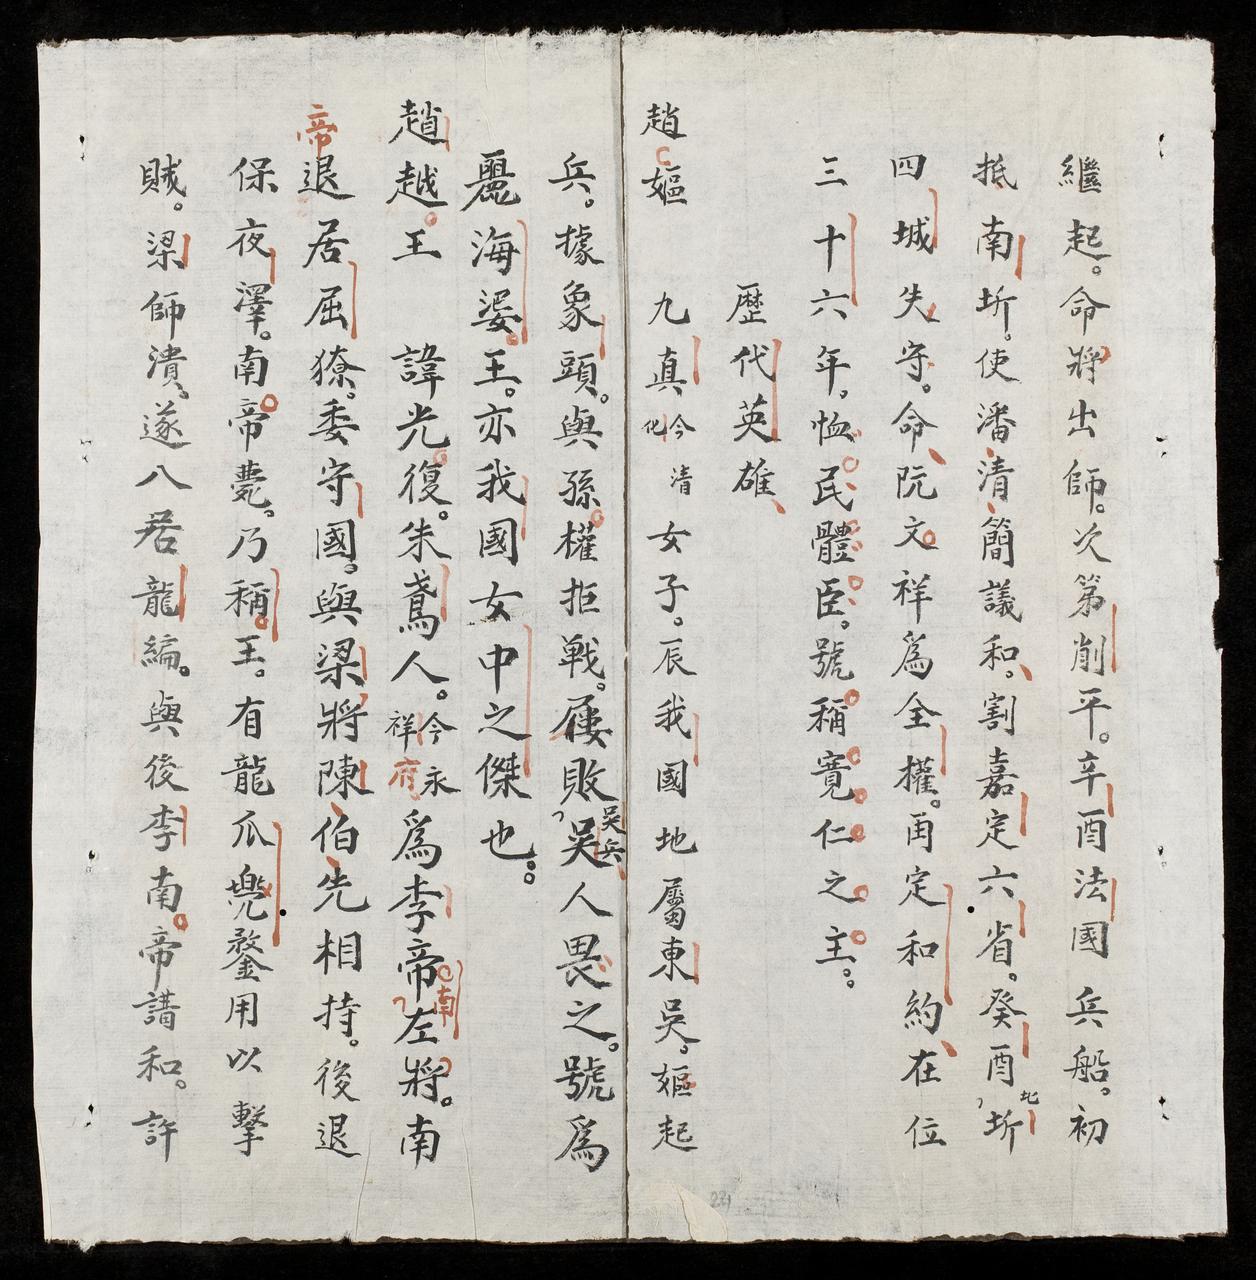 繼起。命將出師。次第削平。辛酉法國兵船。初
抵南圻。使潘清簡議和。割嘉定六省。癸酉北圻
四城失守。命阮文祥爲全權。甫定和約在位
三十六年。恤民體臣。號稱寬仁之主。
歷代英雄
趙嫗 九真今清化女子。辰我國地屬東吳。嫗起
兵。據象頭。與孫權拒戰。屢敗吳兵吳人畏之。號爲
麗海婆王。亦我國女中之傑也。
趙越王 諱光復。朱鳶人。今永祥府爲李南帝左將。南
帝退居屈獠。委守國。與梁將陳伯先相持。後退
保夜澤。南帝薨。乃稱王。有龍爪兜鍪用以擊
賊。梁師潰。遂入居龍編。與後李南帝講和。許
231